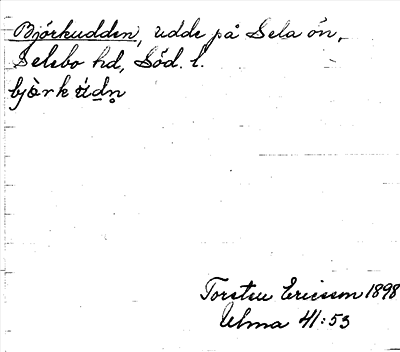 Björkudden, udde på Sela ön,
Selebo hd, Söd. l.
bjö̀rk ŭdn̥
Torsten Ericsson 1898
Ulma 41:53